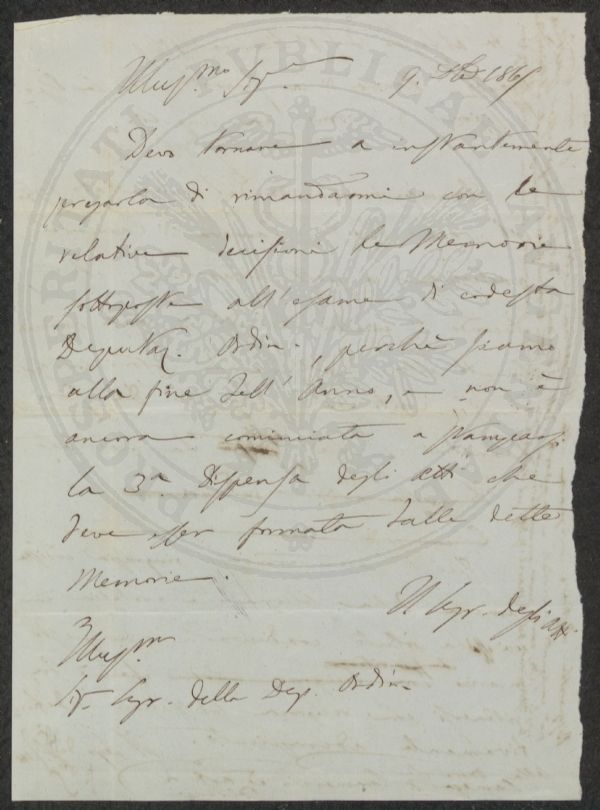 Illus.mo Sig.re 9. Xbre 1865
Devo tornare a instantemente
pregarla di rimandarmi con le
relative decisioni le Memorie
sottoposte all'esame di codesta
Deputaz. Ordin., perchè siamo
alla fine dell'Anno, e non è
ancora cominciata a stamparsi
la 3a. Dispensa degli atti che
deve esser formata dalle dette
Memorie.
Il Segr. degli Atti
Illus.mo
Sig. Segr. della Dep. Ordin.
PROSPERITATI PUBLICAE